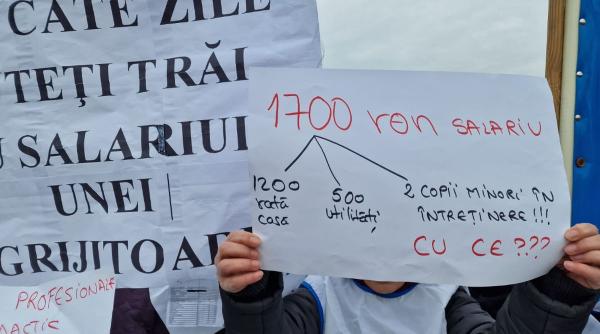 CATE ZILE
TEȚI TRĂI
SALARIUL
UNEI
GRIJITOARE
PROFESIONALE
1700 ron SALARIU
1200
rată
casă
500
utilități
2 COPII MINORI ÎN
ÎNTREȚINERE!!!
CU CE???